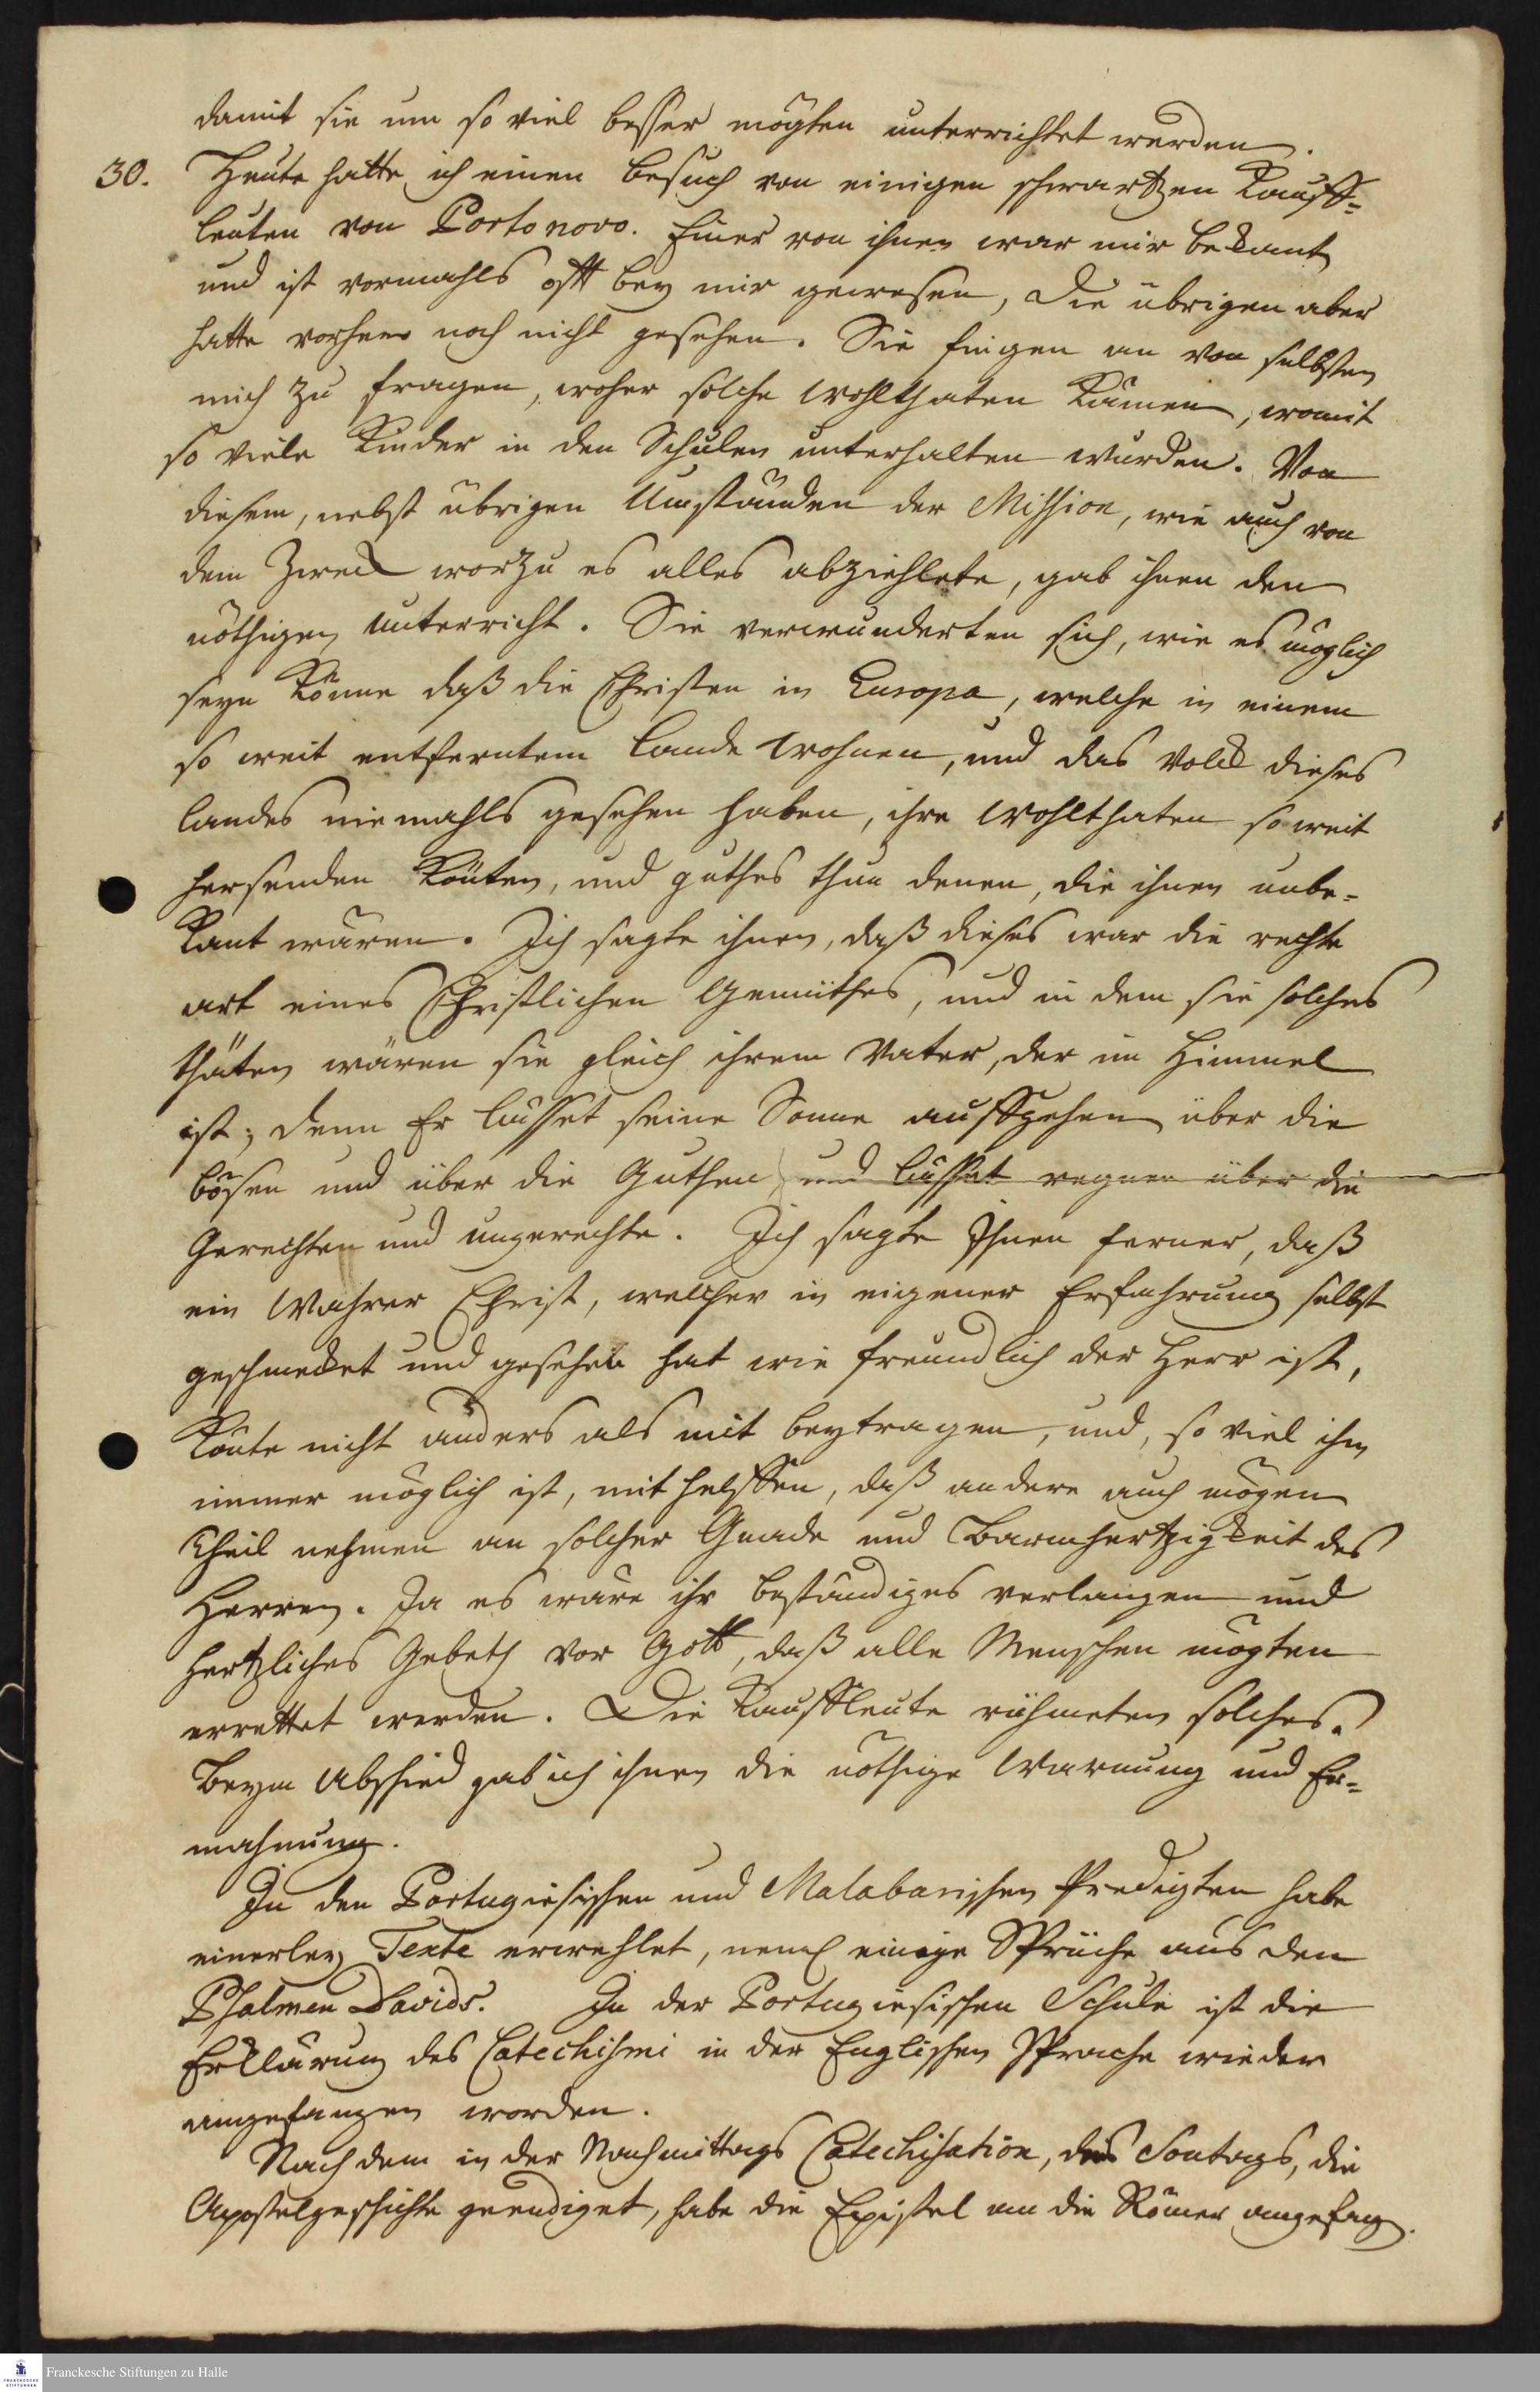 damit sie um so viel besser mögten unterrichtet werden.
30. Heute hatte ich einen besuch von einigen schwartzen Kauff=
leuten von Portonovo. Einer von ihnen war mir bekant
und ist vormahls offt bey mir gewesen, die übrigen aber
hatte vorhero noch nicht gesehen. Sie fingen an von selbsten
mich zu fragen, woher solche wohlthaten kämen, womit
so viele Kinder in den Schulen unterhalten wurden. Von
diesem, nebst übrigen Umständen der Mission, wie auch von
dem Zweck worzu es alles abziehlete, gab ihnen den
nöthigen unterricht. Sie verwunderten sich, wie es möglich
seyn könne daß die Christen in Europa, welche in einem
so weit entferntem lande wohnen, und das Volck dieses
landes niemahls gesehen haben, ihre wohlthaten so weit
hersenden könten, und guthes thun denen, die ihnen unbe-
kant wären. Ich sagte ihnen, daß dieses war die rechte
art eines Christlichen Gemüthes, und in dem sie solches
thäten wären sie gleich ihrem Vater, der im Himmel
ist; denn Er lässet seine Sonne auffgehen über die
bösen und über die Guthen, und lässet regnen über die
Gerechten und ungerechte. Ich sagte Ihnen ferner, daß
ein wahrer Christ, welcher in eigener Erfahrung selbst
geschmecket und gesehen hat wie freundlich der Herr ist,
könte nicht anders als mit beytragen, und, so viel ihm
immer möglich ist, mit helffen, daß andere auch mögen
theil nehmen an solcher Gnade und Barmhertzigkeit des
Herren. Ja es wäre ihr beständiges verlangen und
hertzliches Gebeth vor Gott, daß alle Menschen mögten
errettet werden. Die Kauffleute rühmeten solches.
Beym Abschied gab ich ihnen die nöthige Warnung und Er=
mahnung.
In den Portugiesischen und Malabarischen Predigten habe
einerley Texte erwehlet, neml einige Sprüche aus den
Psalmen Davids. In der Portugiesischen Schule ist die
Erklärung des Catechismi in der Englischen Sprache wieder
angefangen worden.
Nach dem in der Nachmittags Catechisation, des Sontags, die
Apostelgeschichte geendiget, habe die Epistel an die Römer angefang.
Franckesche Stiftungen zu Halle
FRANCKESCHE
STIFTUNGEN